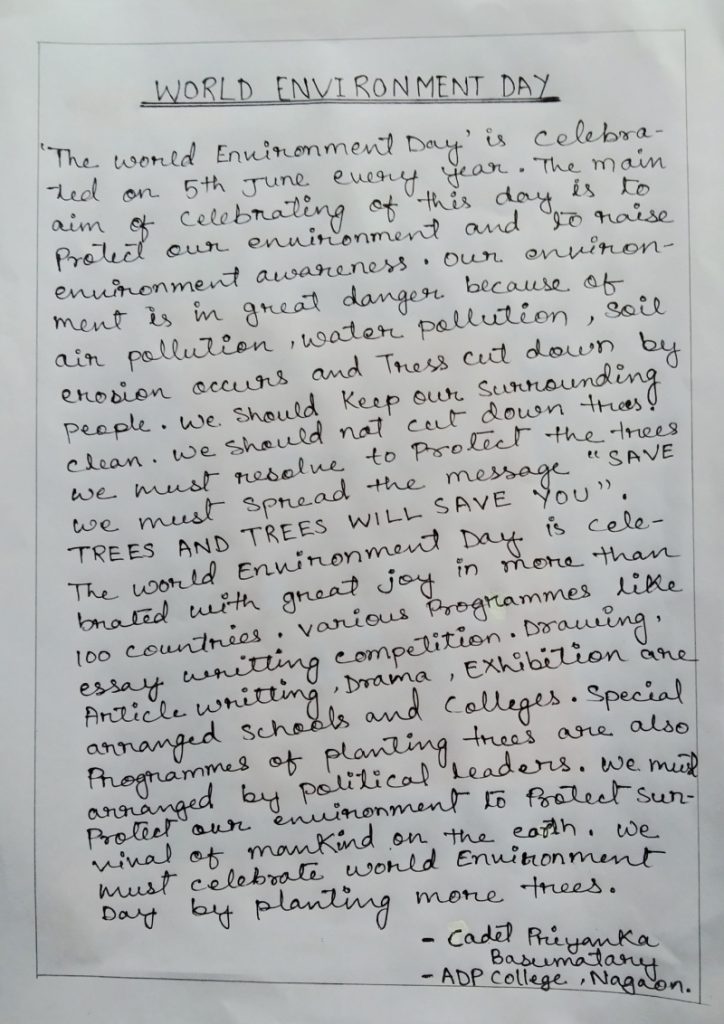 WORLD ENVIRONMENT DAY
'The world Environment Day' is celebra-
ted on 5th June every year. The main
aim of celebrating of this day is to
Protect our environment and to raise
environment awareness. our environ-
ment is in great danger because of
air pollution, water pollution, soil
erosion occurs and Tress cut down by
people. We should Keep our surrounding
clean. We should not cut down trees.
we must resolve to Protect the trees
we must spread the message "SAVE
TREES AND TREES WILL SAVE YOU".
The world Environment Day is cele-
brated with great joy in more than
100 countries. various Programmes like
essay writting competition. Drawing,
Article writting, Drama, Exhibition are
arranged schools and colleges. Special
Programmes of planting trees are also
arranged by political leaders. We must
Protect our environment to Protect sur-
vival of mankind on the earth. We
must celebrate world Environment
Day by planting more trees.
- Cadet Priyanka
Basumatary
- ADP College, Nagaon.